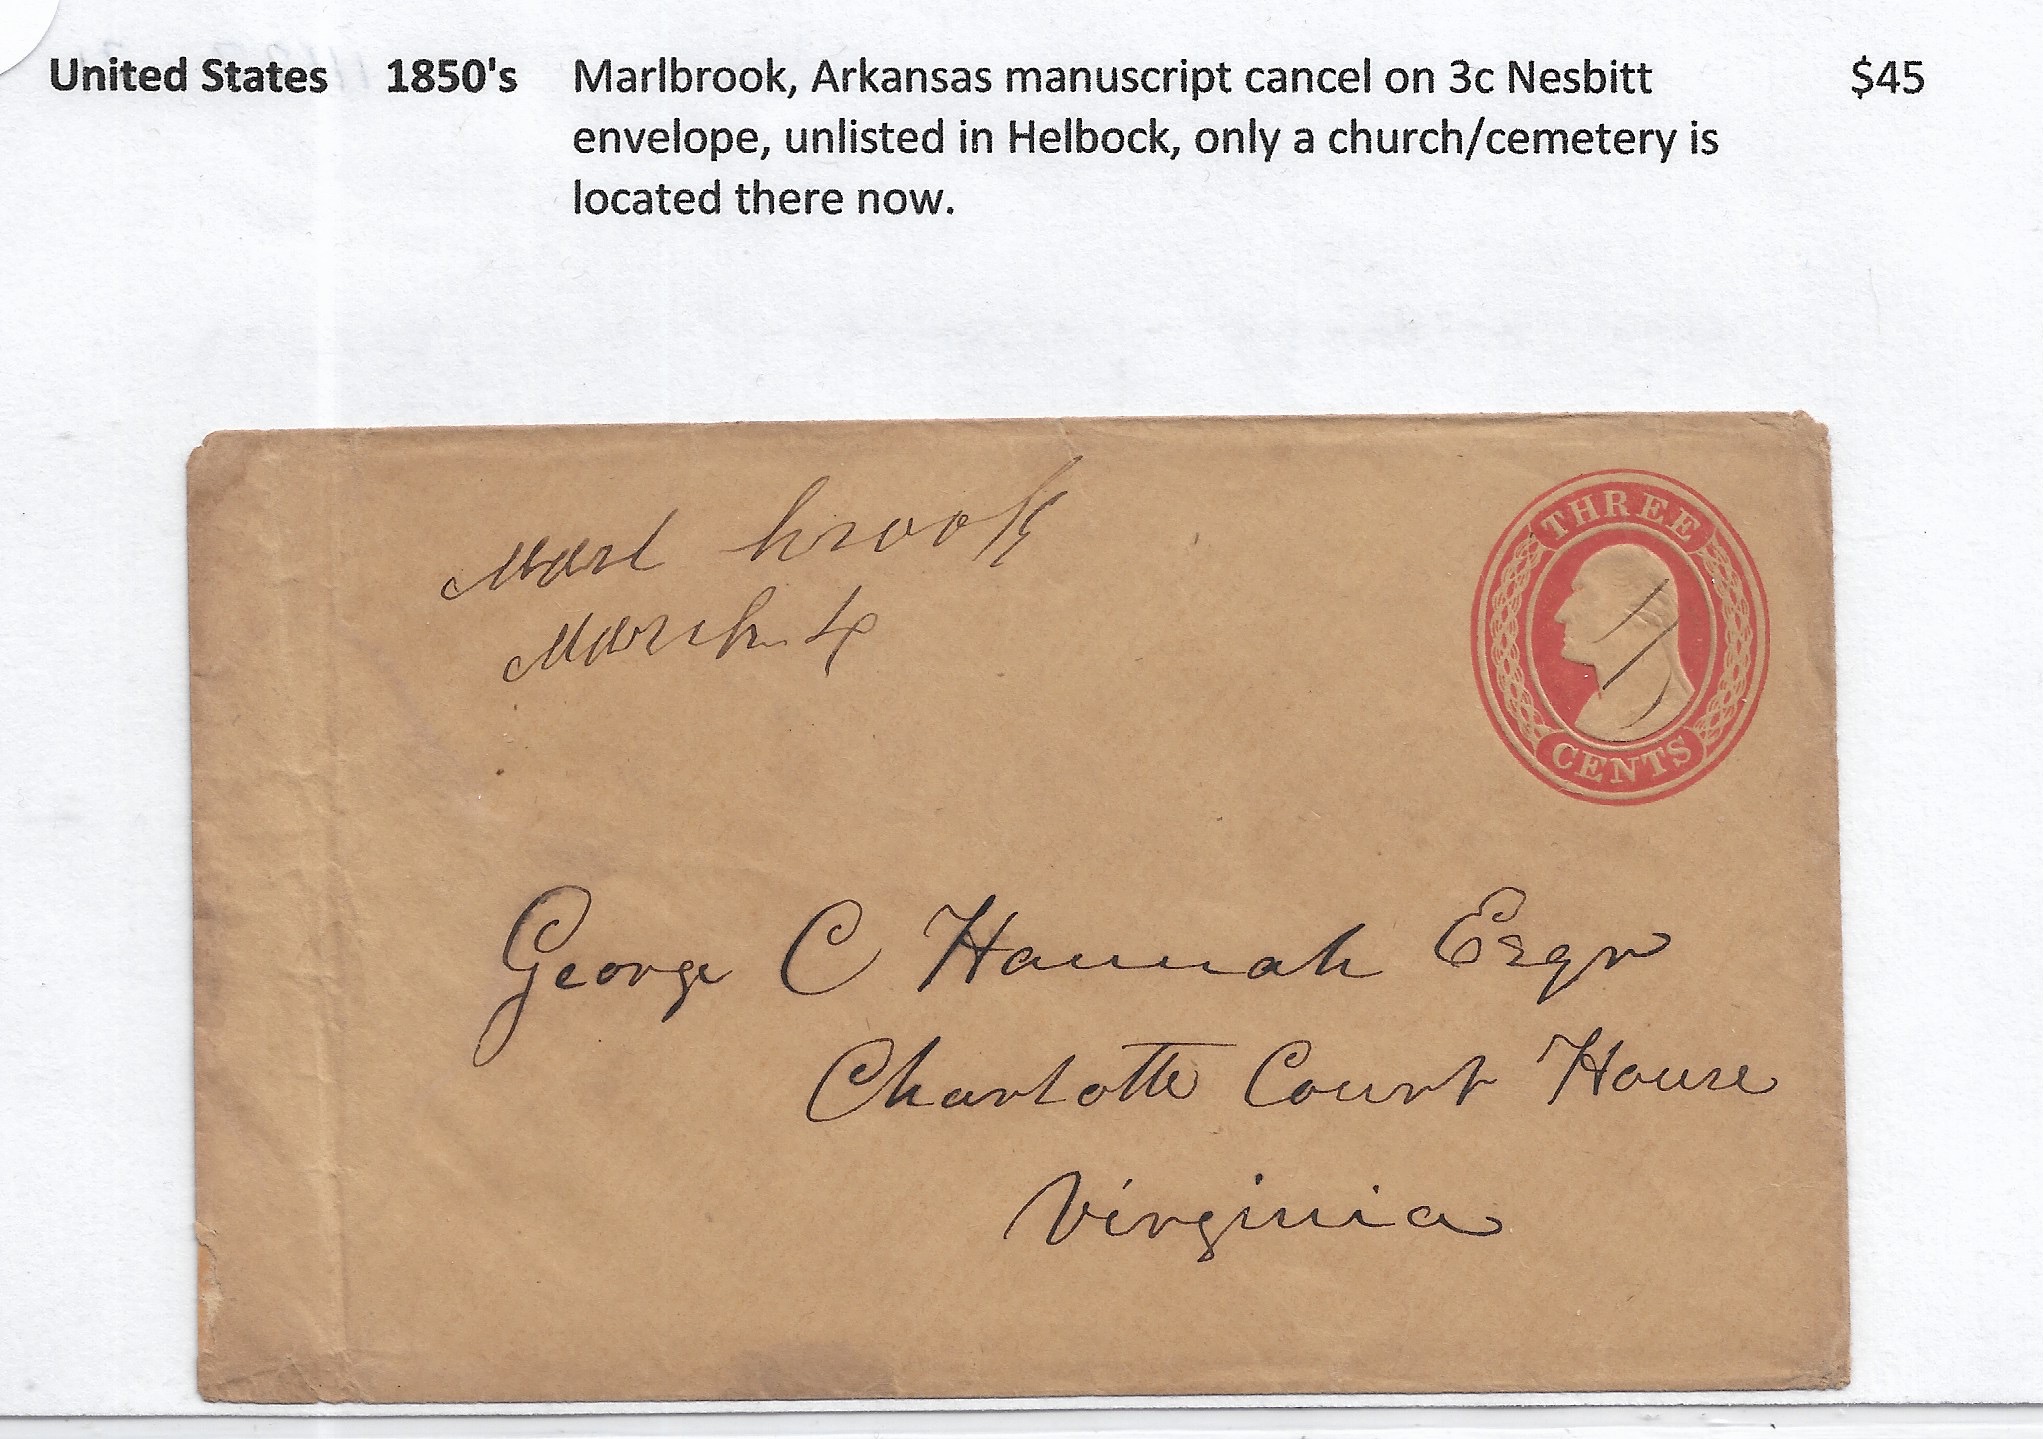 United States 1850's Marlbrook, Arkansas manuscript cancel on 3c Nesbitt $45
envelope, unlisted in Helbock, only a church/cemetery is
located there now.
Marl brook
March 4
THREE
CENTS
George C Hannah Esqr
Charlotte Court House
Virginia